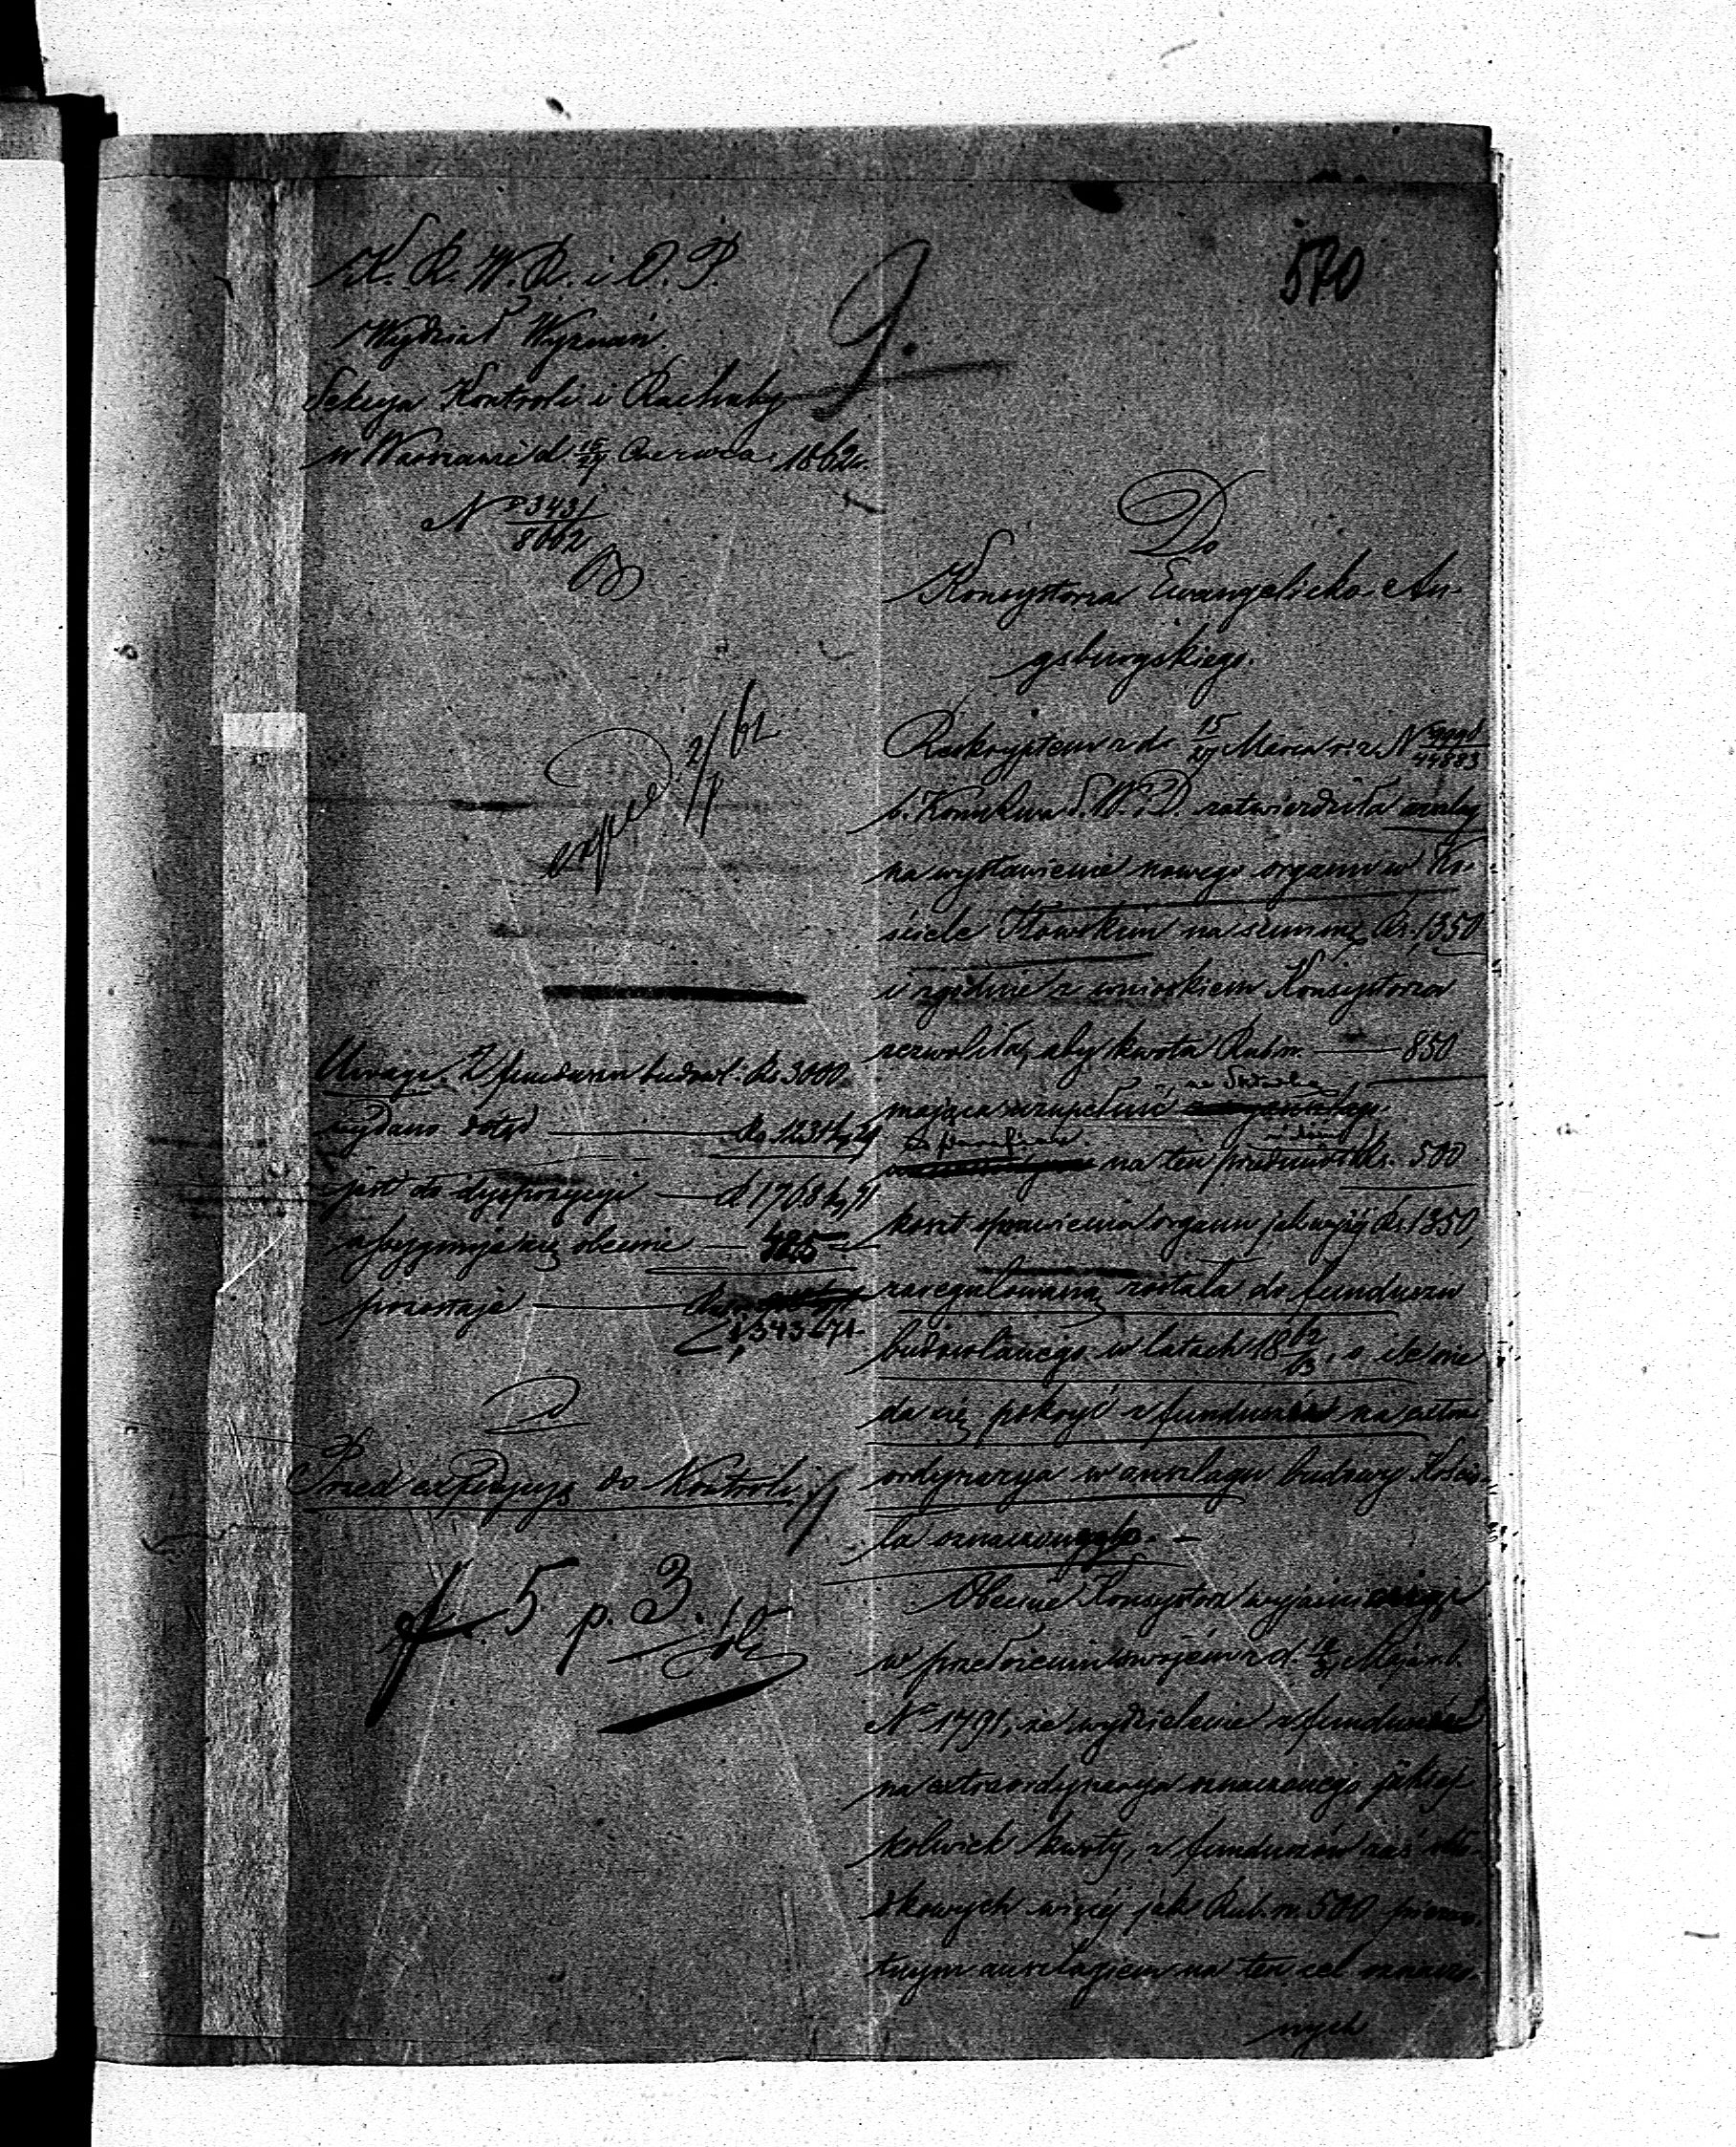 570
K. R. W. R. i O. P.
Wydział Wyznań.
Sekcya Kontroli i Rachuby
w Warszawie d. 15/27 Czerwca 1862 r.
N° 3431/8662
9.
Do
Konsystorza Ewangelicko-Au-
gsburgskiego.
exped. 2/62
Reskryptem z d. 15/27 Marca r. z. N°
b. Komissya S. W. i D. zatwierdziła
na wystawienie nowego organu w Ko-
ściele Iłowskim na summę Rs. 1350
i zgodnie z wnioskiem Konsystorza
zezwoliła, aby kwota Rub. sr. — 850
mająca uzupełnić ze składką
na ten przedmiot Rs. 500
koszt sprawienia organu jak wyżéj Rs. 1350,
zaregulowaną została do funduszu
budowlanego w latach 1862/3, o ile nie
da się pokryć z funduszu na extra-
ordynarya w anszlagu budowy Kościo-
ła oznaczonego. —
Obecnie Konsystorz wyjaśnia
w przedstawieniu swojém z d. Maja r. b.
N° 1791, że wydzielenie z funduszu
na extraordynarya oznaczonego jakiej-
kolwiek kwoty, z funduszów zaś skła-
dkowych więcéj jak Rub. sr. 500 pierwo-
tnym anszlagiem na ten cel oznaczo-
nych
Uwaga. Z funduszu budowl. Rs. 3000
wydano dotąd — Rs. 1231 k. 29
jest do dyspozycyi — d 1768 k. 71
assygnuje się obecnie — 425
pozostaje — 1343 k 71
Przed expedycyą do Kontroli
f. 5 p. 3.